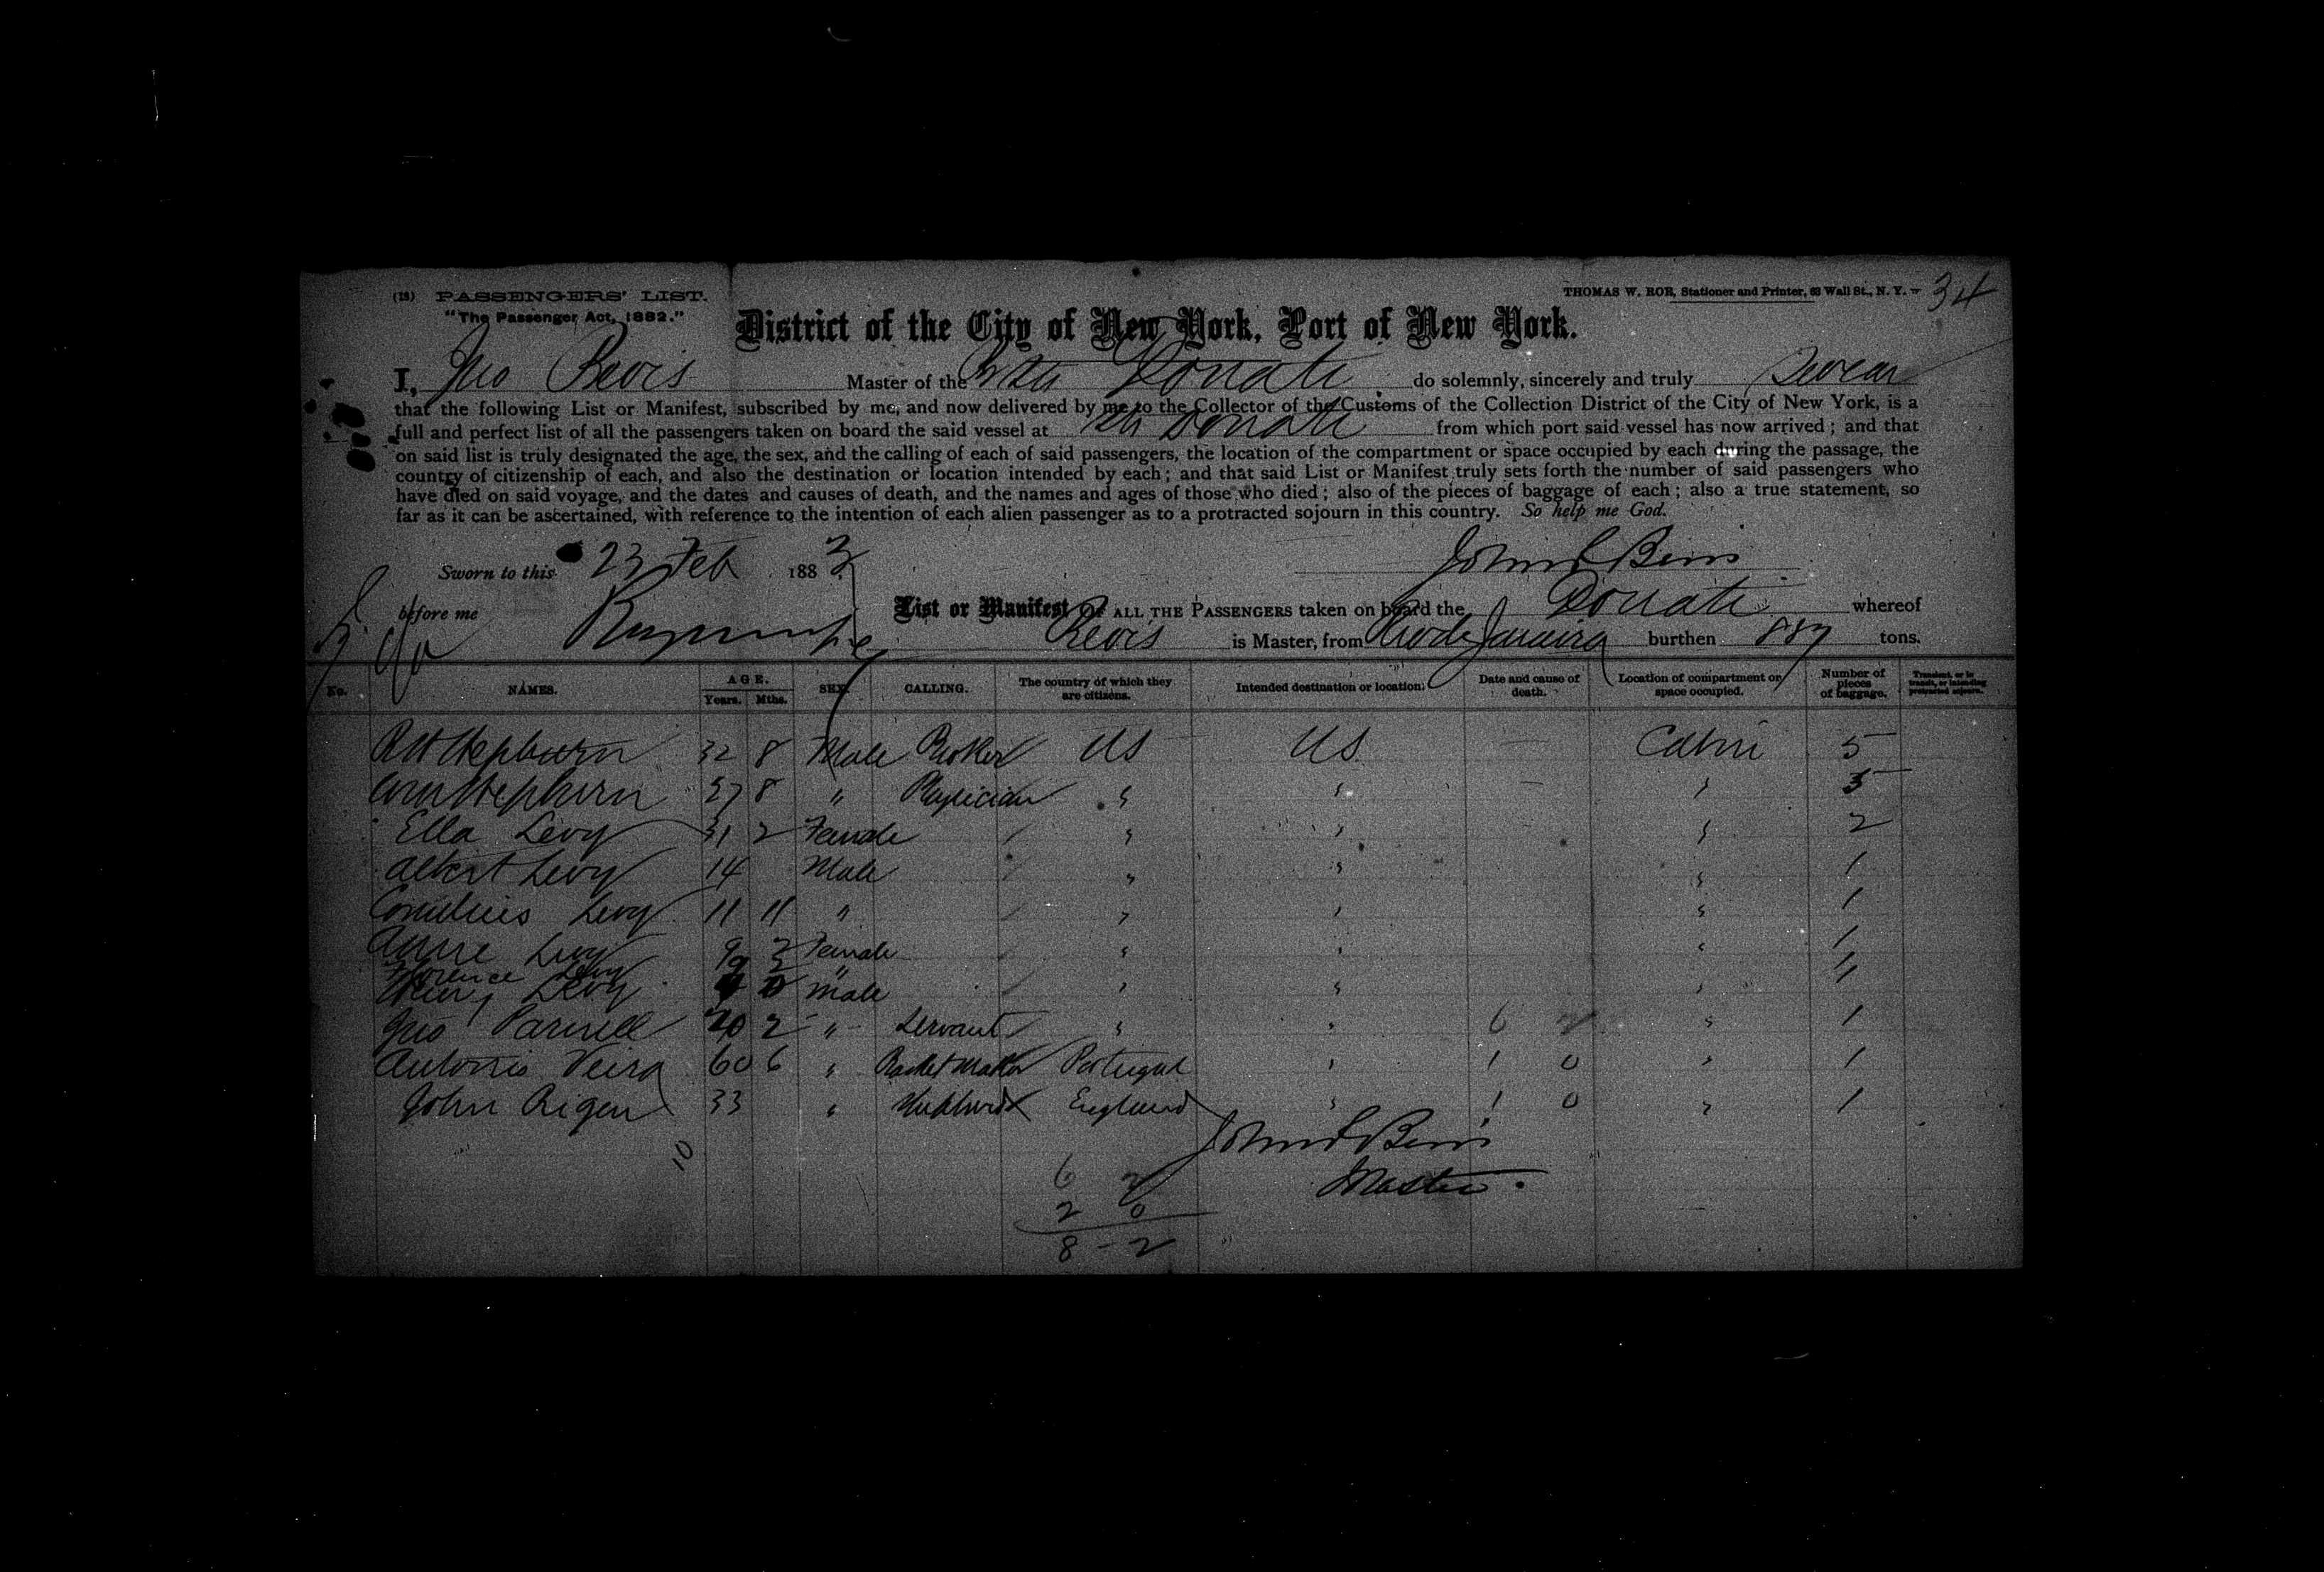 (18) PASSENGERS' LIST.
THOMAS W. ROE, Stationer and Printer, 63 Wall St., N. Y. 34
"The Passenger Act, 1882."
District of the City of New York, Port of New York.
I, Jno Bevis Master of the Donati do solemnly, sincerely and truly Swear
that the following List or Manifest, subscribed by me, and now delivered by me to the Collector of the Customs of the Collection District of the City of New York, is a
full and perfect list of all the passengers taken on board the said vessel at Donati from which port said vessel has now arrived; and that
on said list is truly designated the age, the sex, and the calling of each of said passengers, the location of the compartment or space occupied by each during the passage, the
country of citizenship of each, and also the destination or location intended by each; and that said List or Manifest truly sets forth the number of said passengers who
have died on said voyage, and the dates and causes of death, and the names and ages of those who died; also of the pieces of baggage of each; also a true statement, so
far as it can be ascertained, with reference to the intention of each alien passenger as to a protracted sojourn in this country. So help me God.
Sworn to this 23 Feb 1883 John Bevis
before me List or Manifest OF ALL THE PASSENGERS taken on board the Donati whereof
Bevis is Master, from Rio de Janeiro burthen 887 tons.
No. NAMES. AGE. Years. Mths. SEX. CALLING. The country of which they are citizens. Intended destination or location. Date and cause of death. Location of compartment or space occupied. Number of pieces of baggage. Transient, or in transit, or intending protracted sojourn.
Hepburn 32 8 Male Broker US US Cabin 5
Hepburn 27 8 " Physician " " " 3
Ella Levy 31 2 Female " " " 2
Albert Levy 14 Male " " " 1
Cornelius Levy 11 11 " " " " 1
Annie Levy 9 2 Female " " " 1
Florence Levy 9 2 " 1
Henry Levy Male " " " 1
Jno Parnell 20 2 " Servant " " 6 2 " 1
Antonio Veira 60 6 " Portugal " 1 0 " 1
John Rigen 33 " England " 1 0 " 1
10
John Bevis
Master.
6 2
2 0
8 - 2